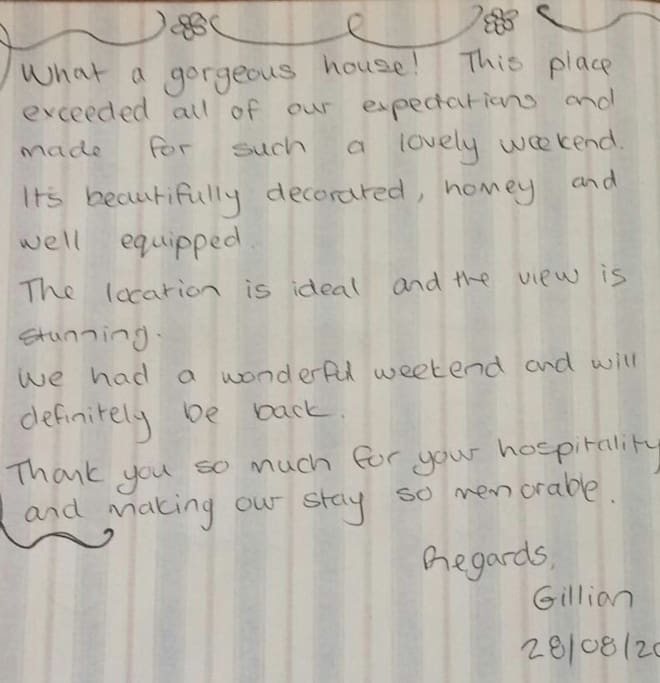 What a gorgeous house! This place
exceeded all of our expectations and
made for such a lovely weekend.
It's beautifully decorated, homey and
well equipped.
The location is ideal and the view is
stunning.
We had a wonderful weekend and will
definitely be back.
Thank you so much for your hospitality
and making our stay so memorable.
Regards,
Gillian
28/08/20